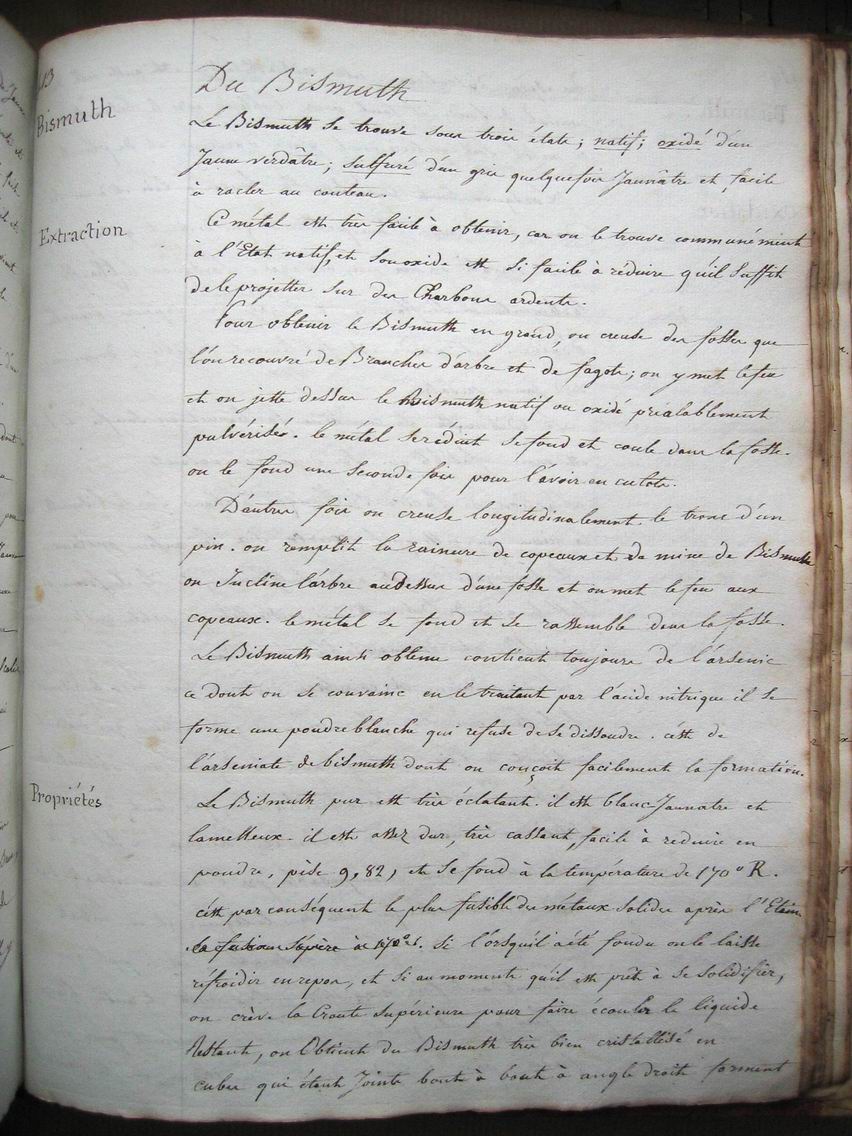 113
Bismuth
Du Bismuth
Le Bismuth se trouve sous trois états; natif; oxidé d'un
Jaune verdâtre; sulfuré d'un gris quelquefois Jaunâtre et facile
à racler au couteau.
Extraction
Ce métal est très facile à obtenir, car on le trouve communément
à l'Etat natif, et son oxide est si facile à réduire qu'il suffit
de le projetter sur des Charbons ardents.
Pour obtenir le Bismuth en grand, on creuse des fosses que
l'on recouvre de Branches d'arbre et de fagots; on y met le feu
et on jette dessus le Bismuth natif ou oxidé préalablement
pulvérisés. le métal se réduit se fond et coule dans la fosse.
on le fond une seconde fois pour l'avoir en culots.
D'autres fois on creuse longitudinalement le tronc d'un
pin. on remplit la rainure de copeaux et de mine de Bismuth
on Incline l'arbre au Dessus d'une fosse et on met le feu aux
copeaux. le métal se fond et se rassemble dans la fosse.
Le Bismuth ainsi obtenu contient toujours de l'arsenic
ce dont on se convainc en le traitant par l'acide nitrique il se
forme une poudre blanche qui refuse de se dissoudre. c'est de
l'arseniate de bismuth dont on conçoit facilement la formation.
Propriétés
Le Bismuth pur est très éclatant. il est blanc-Jaunatre et
lamelleux. il est assez dur, très cassant, facile à reduire en
poudre, pèse 9,82, et se fond à la température de 170° R.
c'est par conséquent le plus fusible des métaux solides après l'Etain
si l'orsqu'il a été fondu on le laisse
réfroidir en repos, et si au moment qu'il est prêt à se solidifier,
on crève la Croute supérieure pour faire écouler le liquide
Restant, on Obtient du Bismuth très bien cristallisé en
cubes qui étant Joints bout à bout à angle droit forment